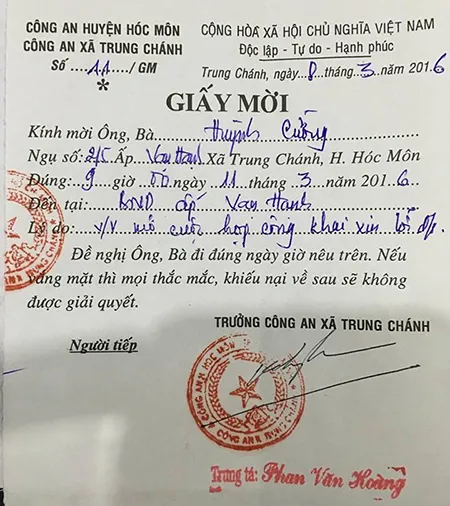 CÔNG AN HUYỆN HÓC MÔN
CÔNG AN XÃ TRUNG CHÁNH
Số ....11..../GM
*
CỘNG HÒA XÃ HỘI CHỦ NGHĨA VIỆT NAM
Độc lập - Tự do - Hạnh phúc
Trung Chánh, ngày..8..tháng..3..năm 2016
GIẤY MỜI
Kính mời Ông, Bà.....Huỳnh Cường
Ngụ số: 2/5 Ấp Vạn Hạnh Xã Trung Chánh, H. Hóc Môn
Đúng: 9 giờ 00 ngày 11 tháng 3 năm 2016
Đến tại: BND ấp Vạn Hạnh
Lý do: v/v mở cuộc họp công khai xin lỗi
Đề nghị Ông, Bà đi đúng ngày giờ nêu trên. Nếu
vắng mặt thì mọi thắc mắc, khiếu nại về sau sẽ không
được giải quyết.
TRƯỞNG CÔNG AN XÃ TRUNG CHÁNH
Người tiếp
Trung tá: Phan Văn Hoàng